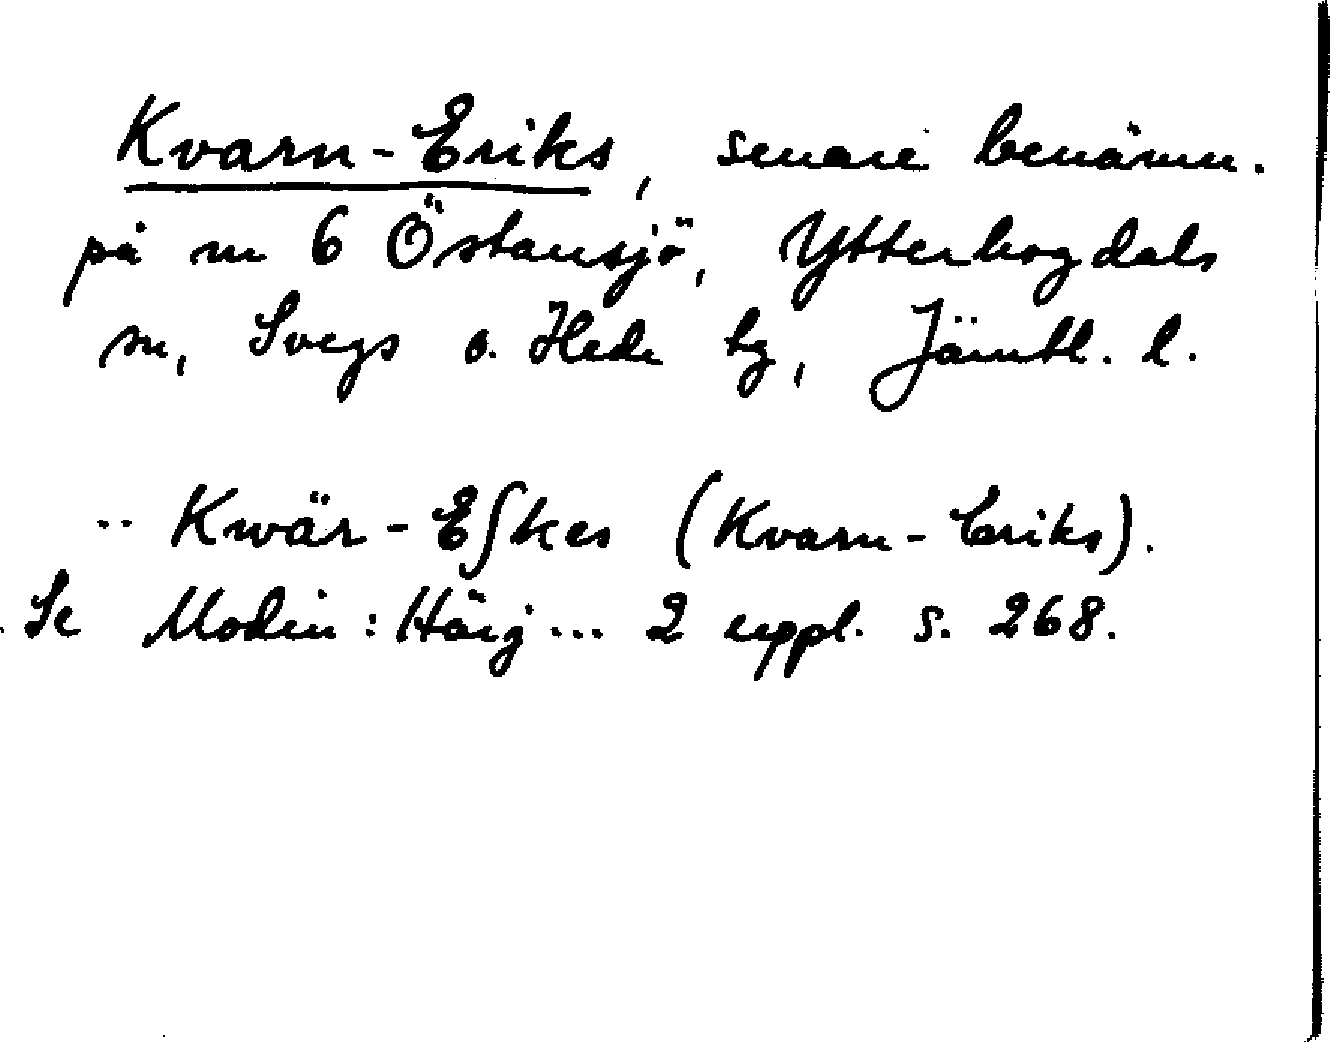 Kvarn-Eriks, senare benämn.
på nr 6 Östansjö, Ytterhogdals
sn, Svegs o. Hede tg, Jämtl. l.
.. Kwär-Eʃkes (Kvarn-Eriks).
Se Modin: Härj... 2 uppl. s. 268.